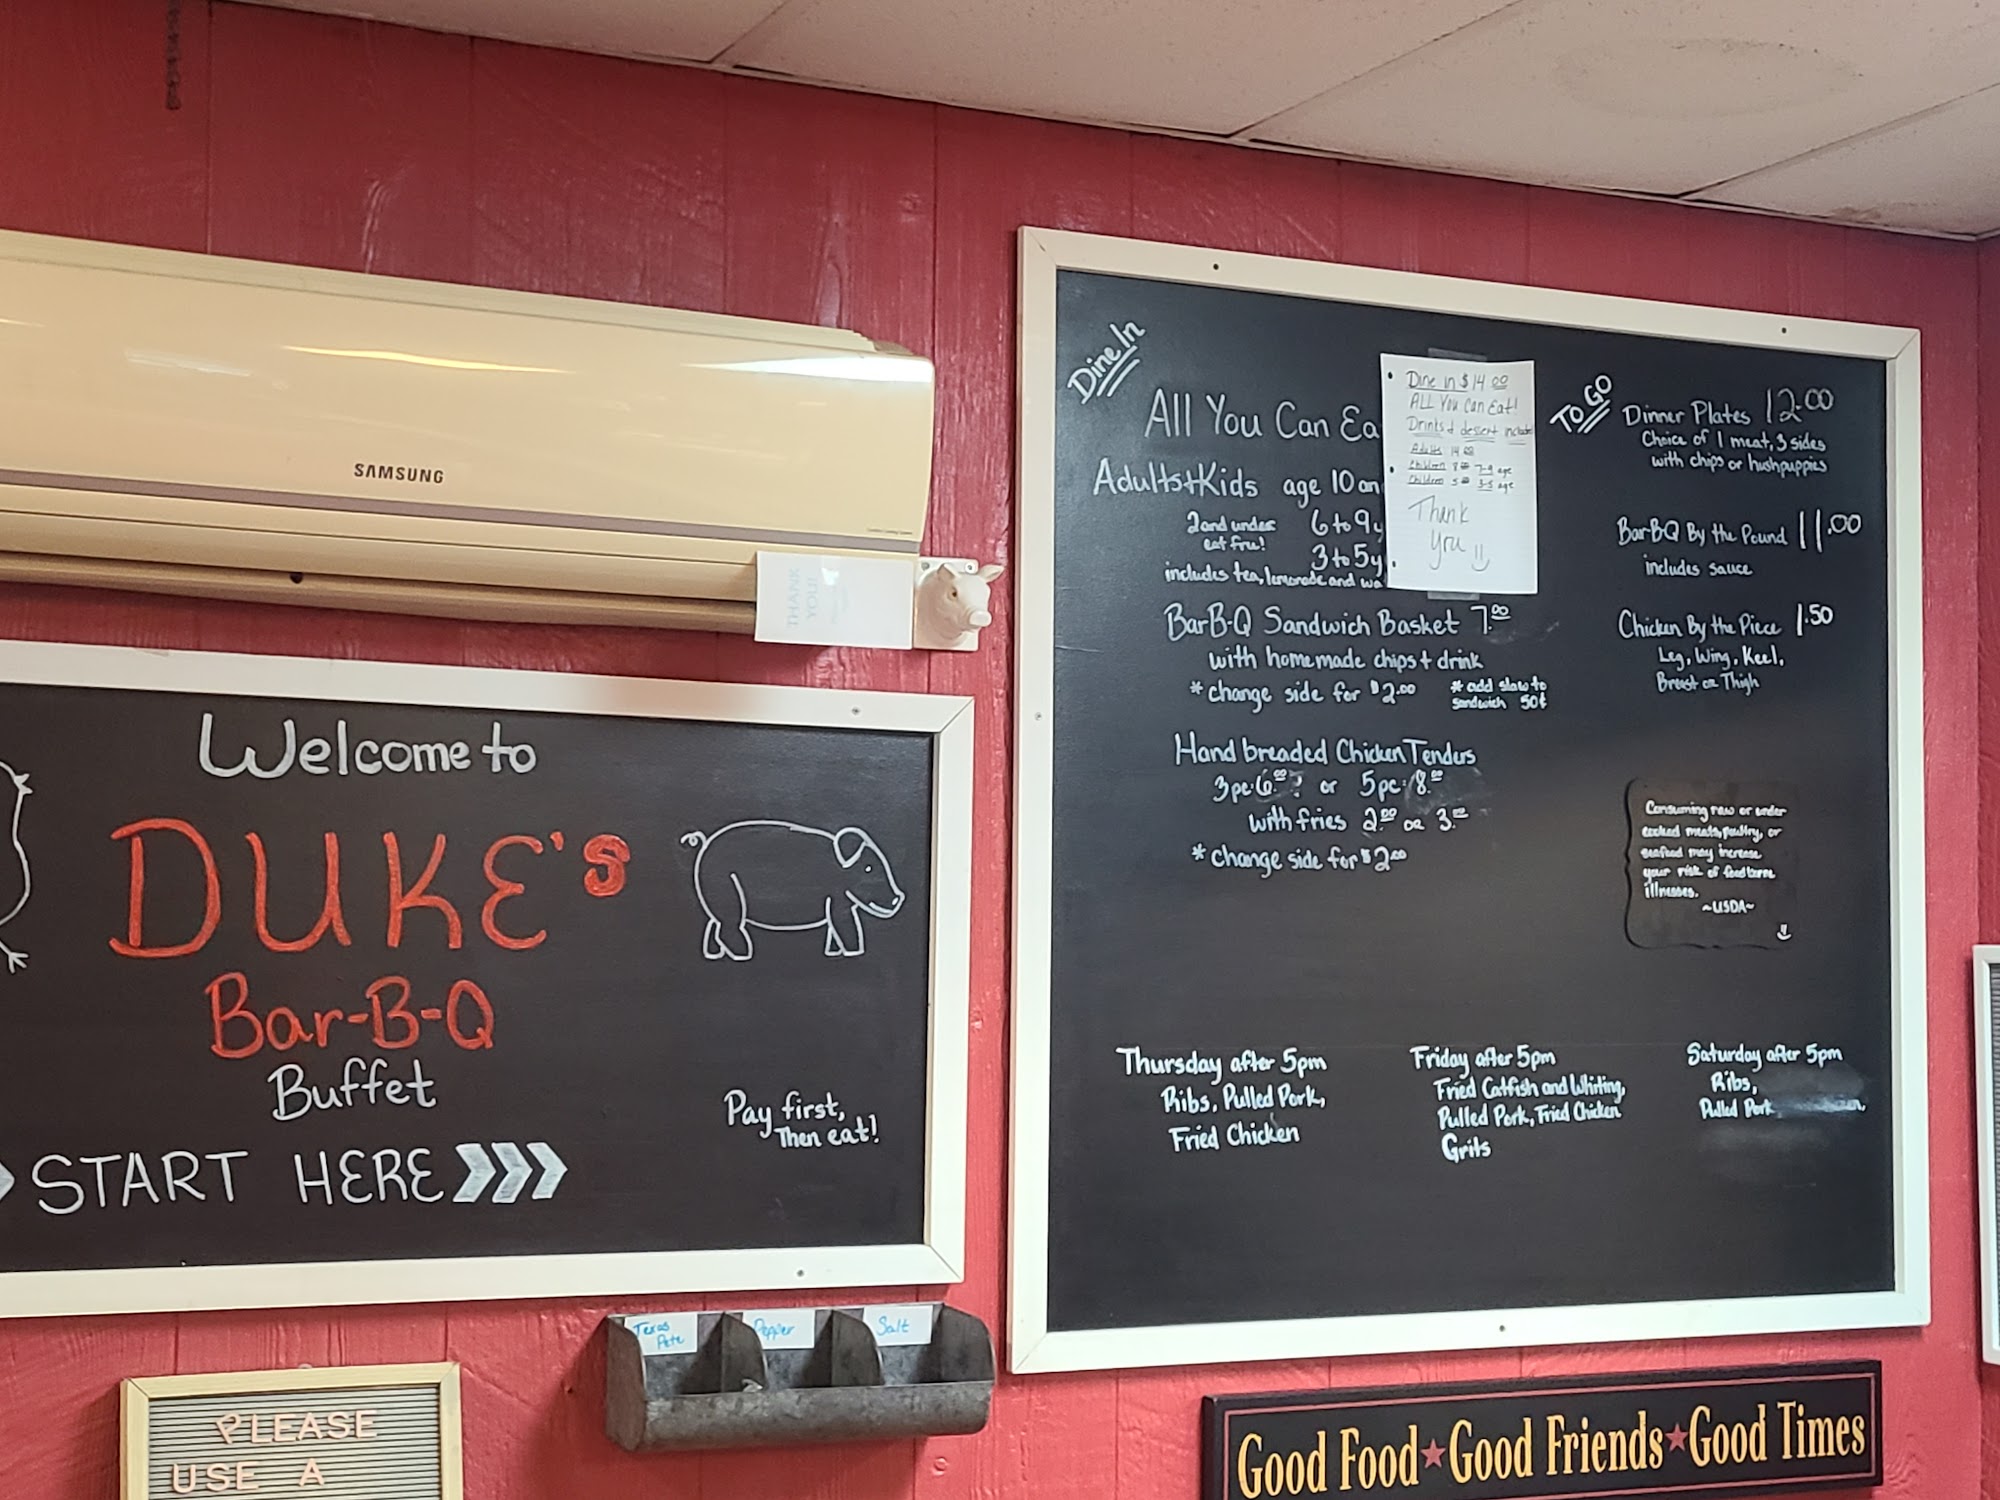 SAMSUNG
THANK
YOU!
Welcome to
DUKE's
Bar-B-Q
Buffet
START HERE
Pay first,
Then eat!
Texas
Pete
Pepper
Salt
PLEASE
USE A
Dine In
All You Can Ea
Adults+Kids age 10 an
2 and under 6 to 9 y
eat free!
3 to 5 y
includes tea, lemonade and wa
BarB-Q Sandwich Basket 7.00
with homemade chips + drink
*change side for $2.00
* add slaw to
sandwich 50¢
Hand breaded Chicken Tenders
3pc 6.00 or 5pc 8.00
with fries 2.00 or 3.00
*change side for $2.00
Dine in $14.00
ALL You Can Eat!
Drinks & dessert included
Adults 14.00
Children 8.00 7-9 age
Children 5.00 3-5 age
Thank
you
TO GO
Dinner Plates 12.00
Choice of 1 meat, 3 sides
with chips or hushpuppies
Bar-BQ By the Pound 11.00
includes sauce
Chicken By the Piece 1.50
Leg, Wing, Keel,
Breast or Thigh
Consuming raw or under
cooked meats, poultry, or
seafood may increase
your risk of foodborne
illnesses.
~USDA~
Thursday after 5pm
Ribs, Pulled Pork,
Fried Chicken
Friday after 5pm
Fried Catfish and Whiting,
Pulled Pork, Fried Chicken
Grits
Saturday after 5pm
Ribs,
Pulled Pork
Good Food Good Friends Good Times